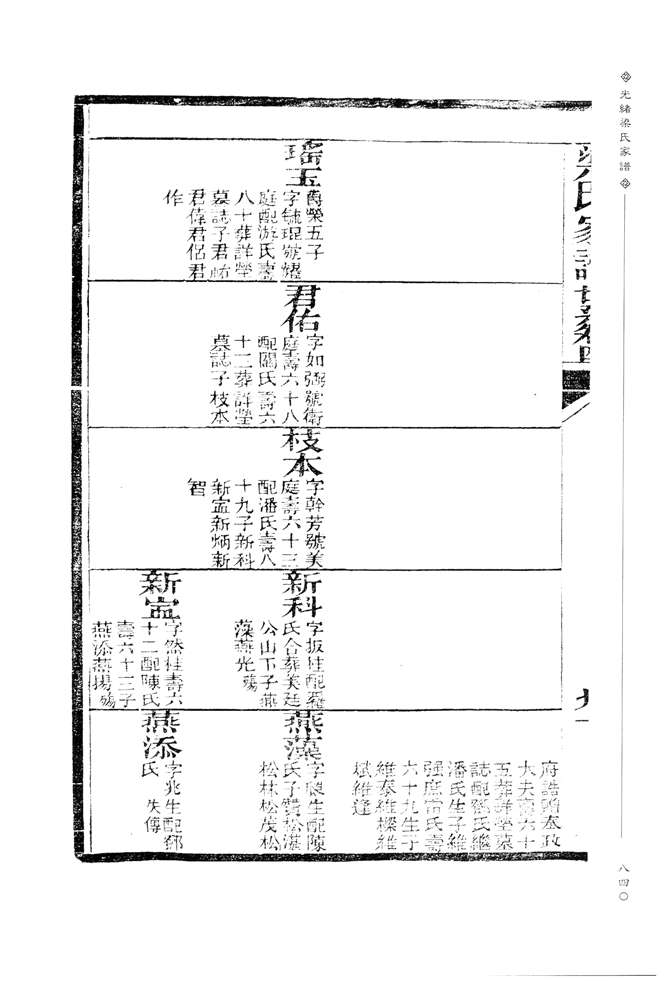 光緒梁氏家譜
八四〇
梁氏家譜世系四
九
瑤玉
爵榮五子
字毓琨號燿
庭配游氏壽
八十葬詳塋
墓誌子君祐
君偉君侶君
作
君佑
字如弼號衛
庭壽六十八
配關氏壽六
十二葬詳塋
墓誌子枝本
枝本
字幹芳號美
庭壽六十三
配潘氏壽八
十九子新科
新寍新炳新
智
新科
字扳桂配羅
氏合葬美廷
公山下子燕
藻燕光殤
新寍
字然桂壽六
十二配陳氏
壽六十三子
燕添燕揚殤
府誥贈奉政
大夫壽六十
五葬詳塋墓
誌配鄧氏繼
潘氏生子維
强庶雷氏壽
六十九生子
維泰維樑維
斌維逢
燕藻
字騤生配陳
氏子贊松湛
松林松茂松
燕添
字兆生配鄧
氏 失傳